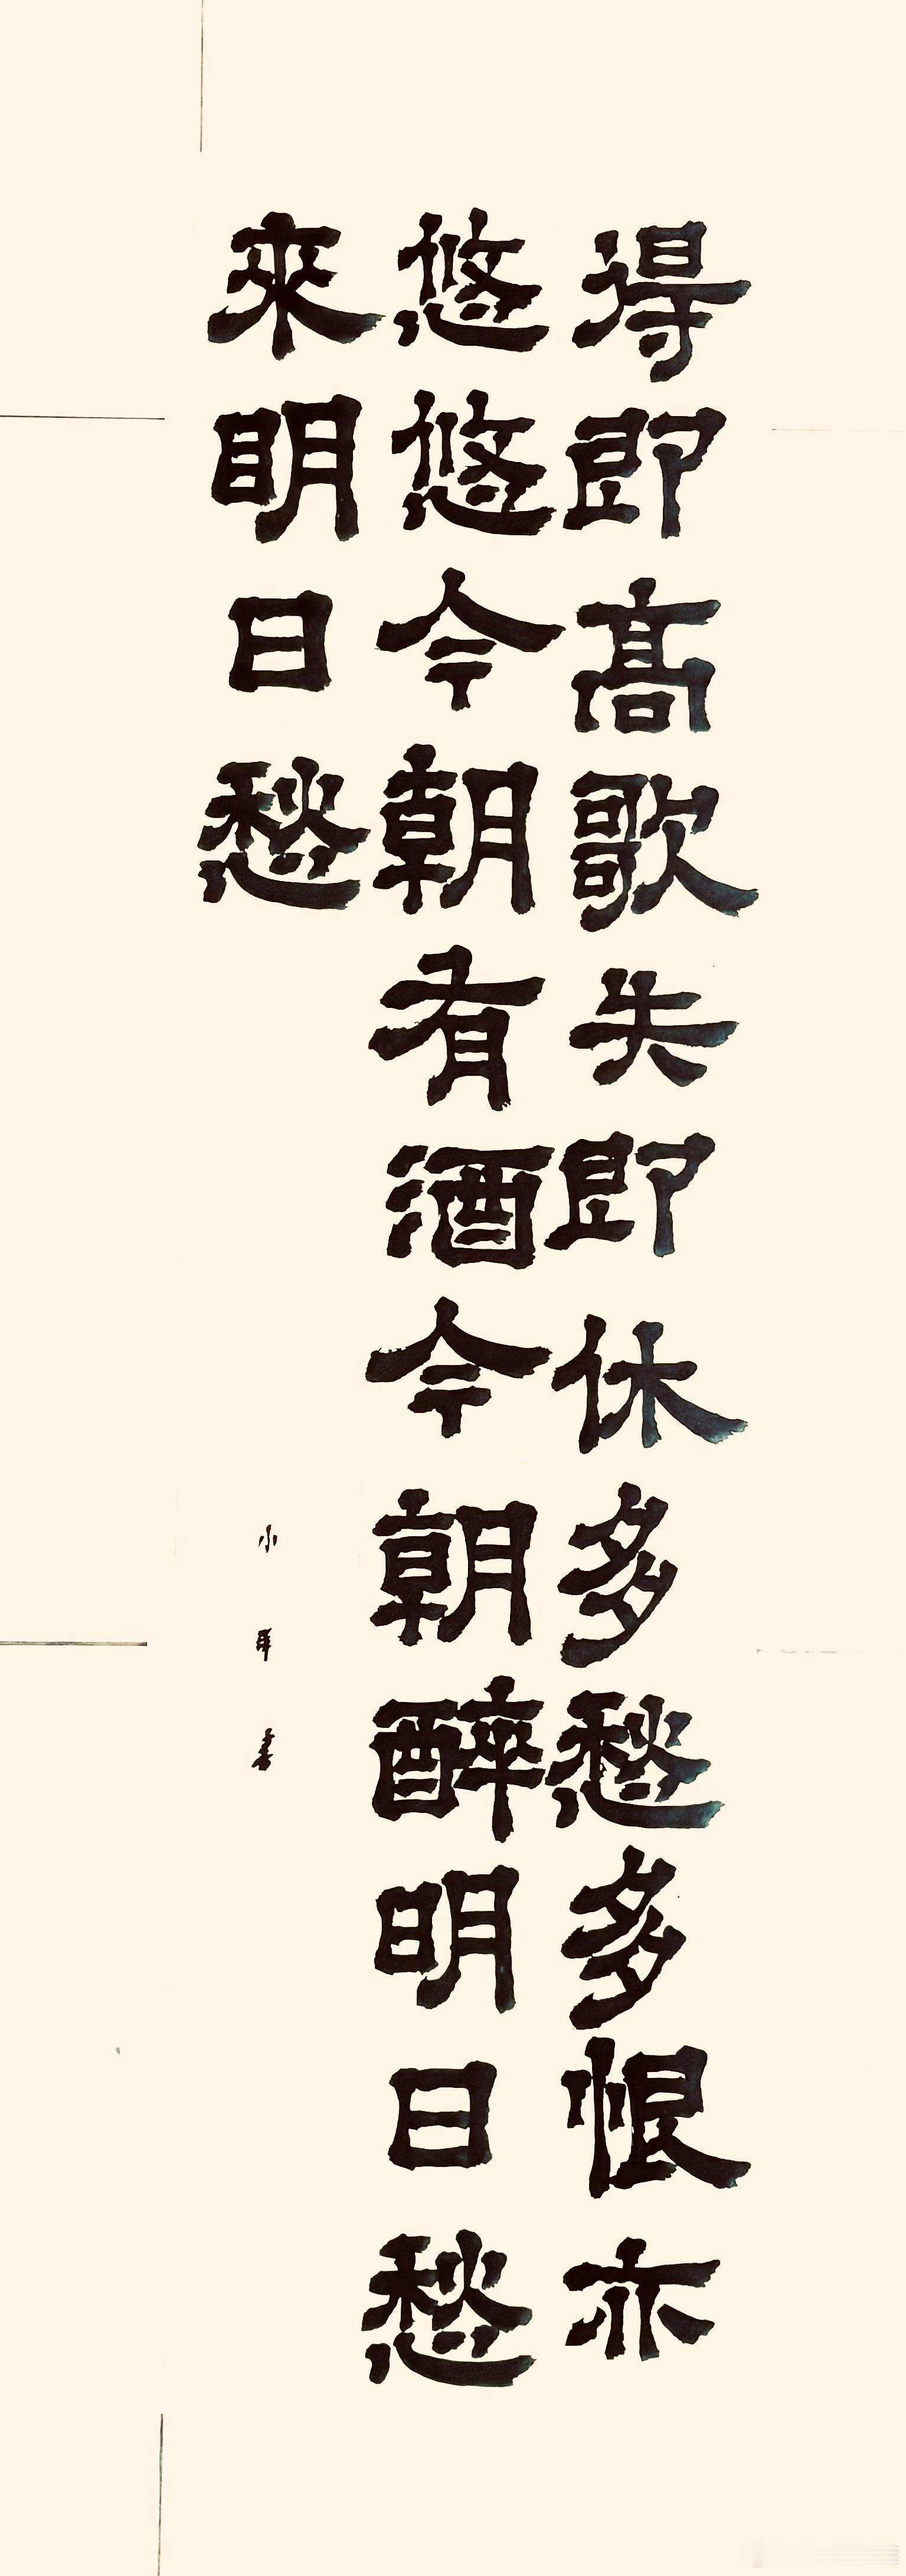 得即高歌失即休多愁多恨亦
悠悠今朝有酒今朝醉明日愁
來明日愁
小 書